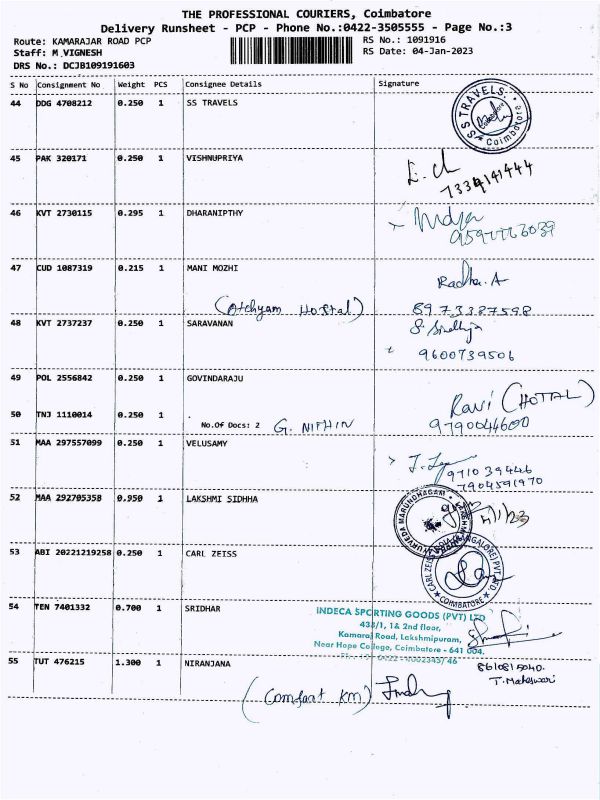 THE PROFESSIONAL COURIERS, Coimbatore
Delivery Runsheet - PCP - Phone No.:0422-3505555 - Page No.:3
Route: KAMARAJAR ROAD PCP RS No.: 1091916
Staff: M.VIGNESH RS Date: 04-Jan-2023
DRS No.: DCJB109191603
S No Consignment No Weight PCS Consignee Details Signature
44 DDG 4708212 0.250 1 SS TRAVELS
S S TRAVELS Coimbatore
45 PAK 320171 0.250 1 VISHNUPRIYA
7339141444
46 KVT 2730115 0.295 1 DHARANIPTHY
47 CUD 1087319 0.215 1 MANI MOZHI
Radha. A
(Atchyam Hostal) 8973387598
48 KVT 2737237 0.250 1 SARAVANAN
9600739506
49 POL 2556842 0.250 1 GOVINDARAJU
Ravi (HOTTAL)
50 TNJ 1110014 0.250 1 .
No.Of Docs: 2 G. NITHIN 9790044600
51 MAA 297557099 0.250 1 VELUSAMY
971039446
7904591970
52 MAA 292705358 0.950 1 LAKSHMI SIDHHA
AYURVEDA MARUNDHAGAM
4/1/23
53 ABI 20221219258 0.250 1 CARL ZEISS
CARL ZEISS (BANGALORE) PVT LTD COIMBATORE
54 TEN 7401332 0.700 1 SRIDHAR
INDECA SPORTING GOODS (PVT) LTD
433/1, 1& 2nd floor,
Kamaraj Road, Lakshmipuram,
Near Hope College, Coimbatore - 641 004.
55 TUT 476215 1.300 1 NIRANJANA
8610815040.
T. Maheswari
(Comfaat Km)